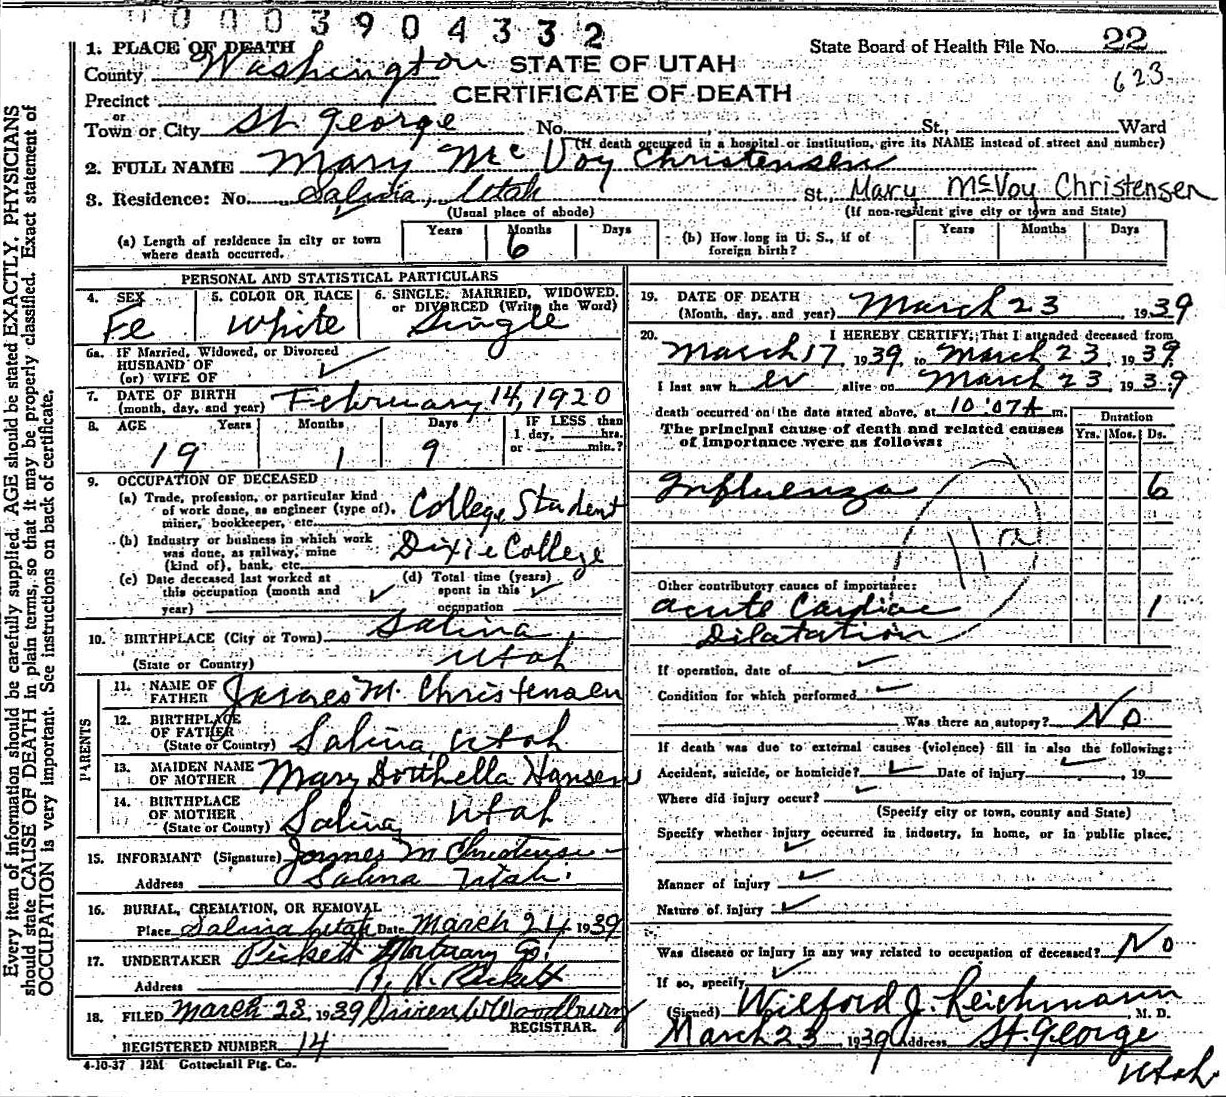 0003904332
1. PLACE OF DEATH
State Board of Health File No. 22
County Washington
STATE OF UTAH
623
Precinct
CERTIFICATE OF DEATH
or
Town or City St George No. St., Ward
(If death occurred in a hospital or institution, give its NAME instead of street and number)
2. FULL NAME Mary McVoy Christensen
3. Residence: No. Salina, Utah St. Mary McVoy Christensen
(Usual place of abode) (If non-resident give city or town and State)
(a) Length of residence in city or town where death occurred. Years Months 6 Days
(b) How long in U. S., if of foreign birth? Years Months Days
PERSONAL AND STATISTICAL PARTICULARS
4. SEX Fe
5. COLOR OR RACE White
6. SINGLE, MARRIED, WIDOWED, or DIVORCED (Write the Word) Single
6a. IF Married, Widowed, or Divorced
HUSBAND OF
(or) WIFE OF ✓
7. DATE OF BIRTH
(month, day, and year) February 14, 1920
8. AGE Years Months Days IF LESS than
1 day, hrs.
or min.?
19 1 9
9. OCCUPATION OF DECEASED
(a) Trade, profession, or particular kind
of work done, as engineer (type of),
miner, bookkeeper, etc. College Student
(b) Industry or business in which work
was done, as railway, mine
(kind of), bank, etc. Dixie College
(c) Date deceased last worked at
this occupation (month and
year) ✓
(d) Total time (years)
spent in this ✓
occupation
10. BIRTHPLACE (City or Town) Salina,
(State or Country) Utah
PARENTS
11. NAME OF
FATHER James M. Christensen
12. BIRTHPLACE
OF FATHER
(State or Country) Salina, Utah
13. MAIDEN NAME
OF MOTHER Mary Dorthella Hansen
14. BIRTHPLACE
OF MOTHER
(State or Country) Salina, Utah
15. INFORMANT (Signature) James M Christensen
Address Salina Utah.
16. BURIAL, CREMATION, OR REMOVAL
Place Salina Utah Date March 24, 1939
17. UNDERTAKER Pickett Mortuary Co.
Address Pickett
18. FILED March 23, 1939 Woodbury
REGISTRAR.
REGISTERED NUMBER 14
4-10-37 12M Gottschall Ptg. Co.
19. DATE OF DEATH
(Month, day, and year) March 23 1939
20. I HEREBY CERTIFY, That I attended deceased from
March 17, 1939, to March 23, 1939
I last saw her alive on March 23, 1939
death occurred on the date stated above, at 10:07A m.
The principal cause of death and related causes
of importance were as follows:
Duration
Yrs. Mos. Ds.
Influenza 6
11a
Other contributory causes of importance:
Acute Cardiac 1
Dilatation
If operation, date of ✓
Condition for which performed ✓
Was there an autopsy? No
If death was due to external causes (violence) fill in also the following:
Accident, suicide, or homicide? ✓ Date of injury ✓, 19
Where did injury occur? ✓
(Specify city or town, county and State)
Specify whether injury occurred in industry, in home, or in public place.
✓
Manner of injury ✓
Nature of injury ✓
Was disease or injury in any way related to occupation of deceased? No
If so, specify ✓
(Signed) Wilford J. Reichmann M. D.
March 23, 1939 Address St. George
Utah
Every item of information should be carefully supplied. AGE should be stated EXACTLY. PHYSICIANS
should state CAUSE OF DEATH in plain terms, so that it may be properly classified. Exact statement of
OCCUPATION is very important. See instructions on back of certificate.